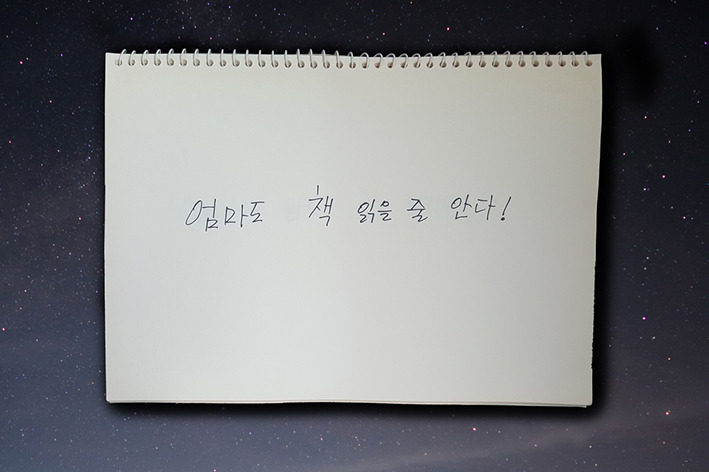 엄마도 책 읽을 줄 안다!